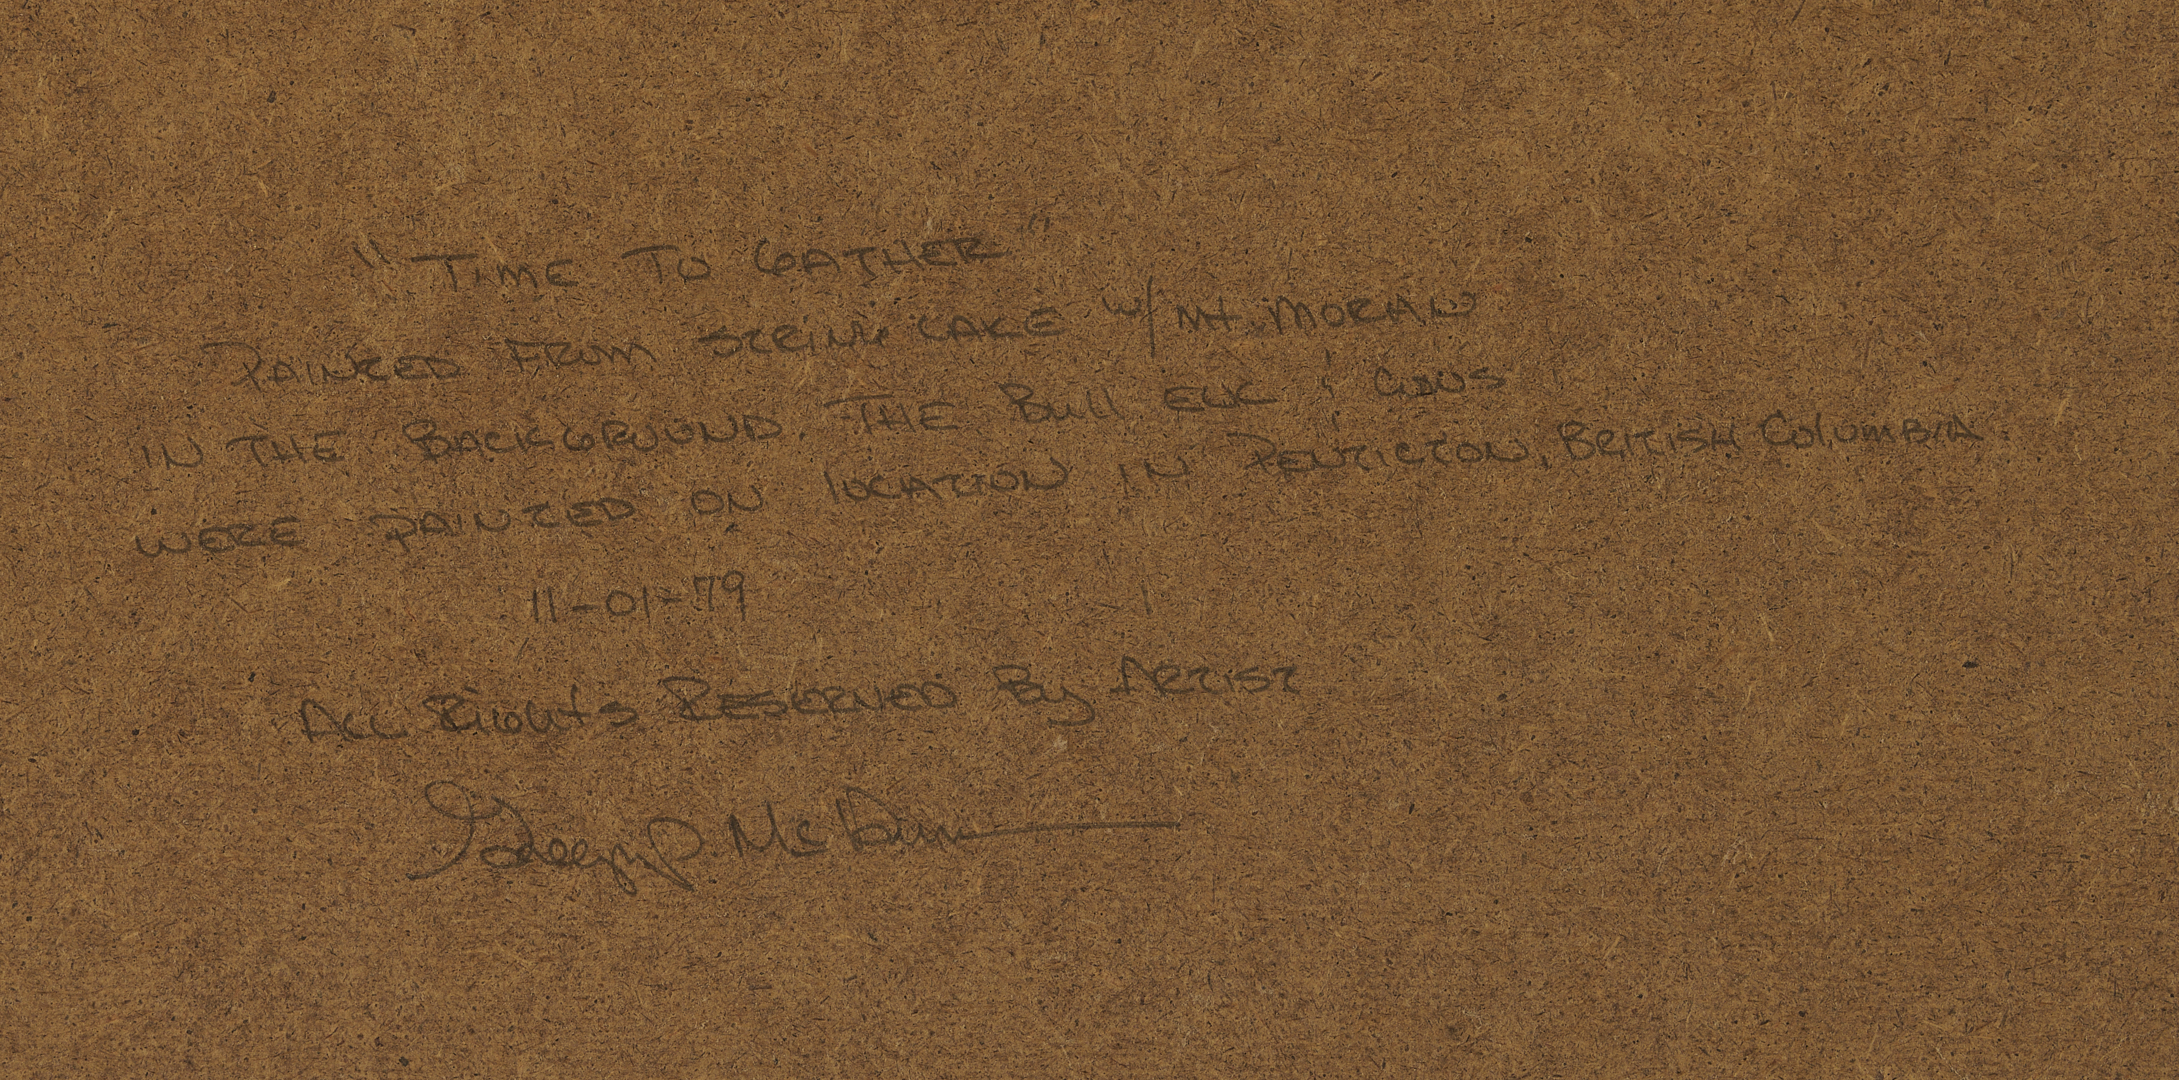 "TIME TO GATHER"
PAINTED FROM STRING LAKE w/ Mt. MORAN
IN THE BACKGROUND. THE Bull ELK & COWS
WERE PAINTED ON LOCATION IN PENTICTON, BRITISH COLUMBIA.
11-01-79
ALL RIGHTS RESERVED By ARTIST
P. Mc